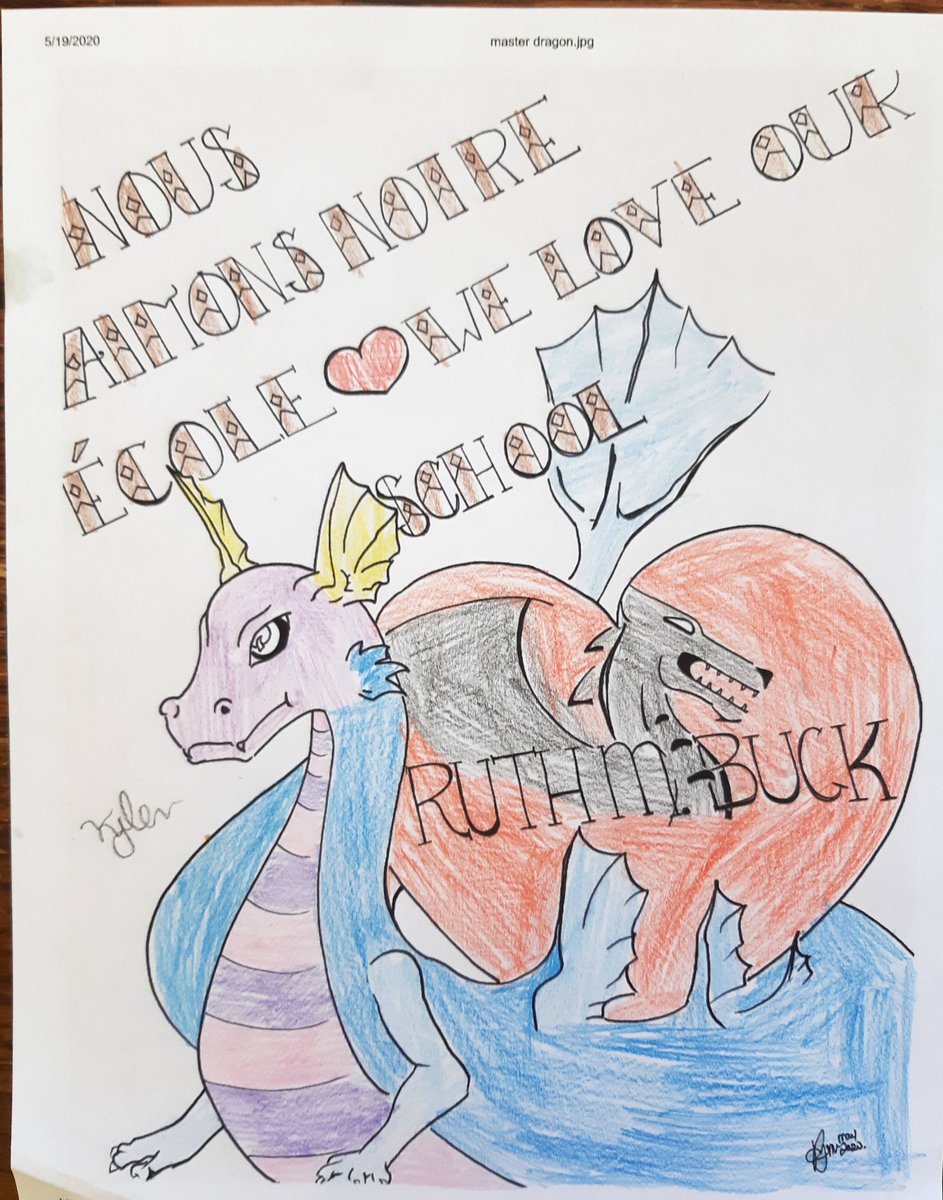 5/19/2020 master dragon.jpg
NOUS
AIMONS NOIRE
ÉCOLE ❤ WE LOVE OUR
SCHOOL
RUTH M. BUCK
Kyler
may
2020.